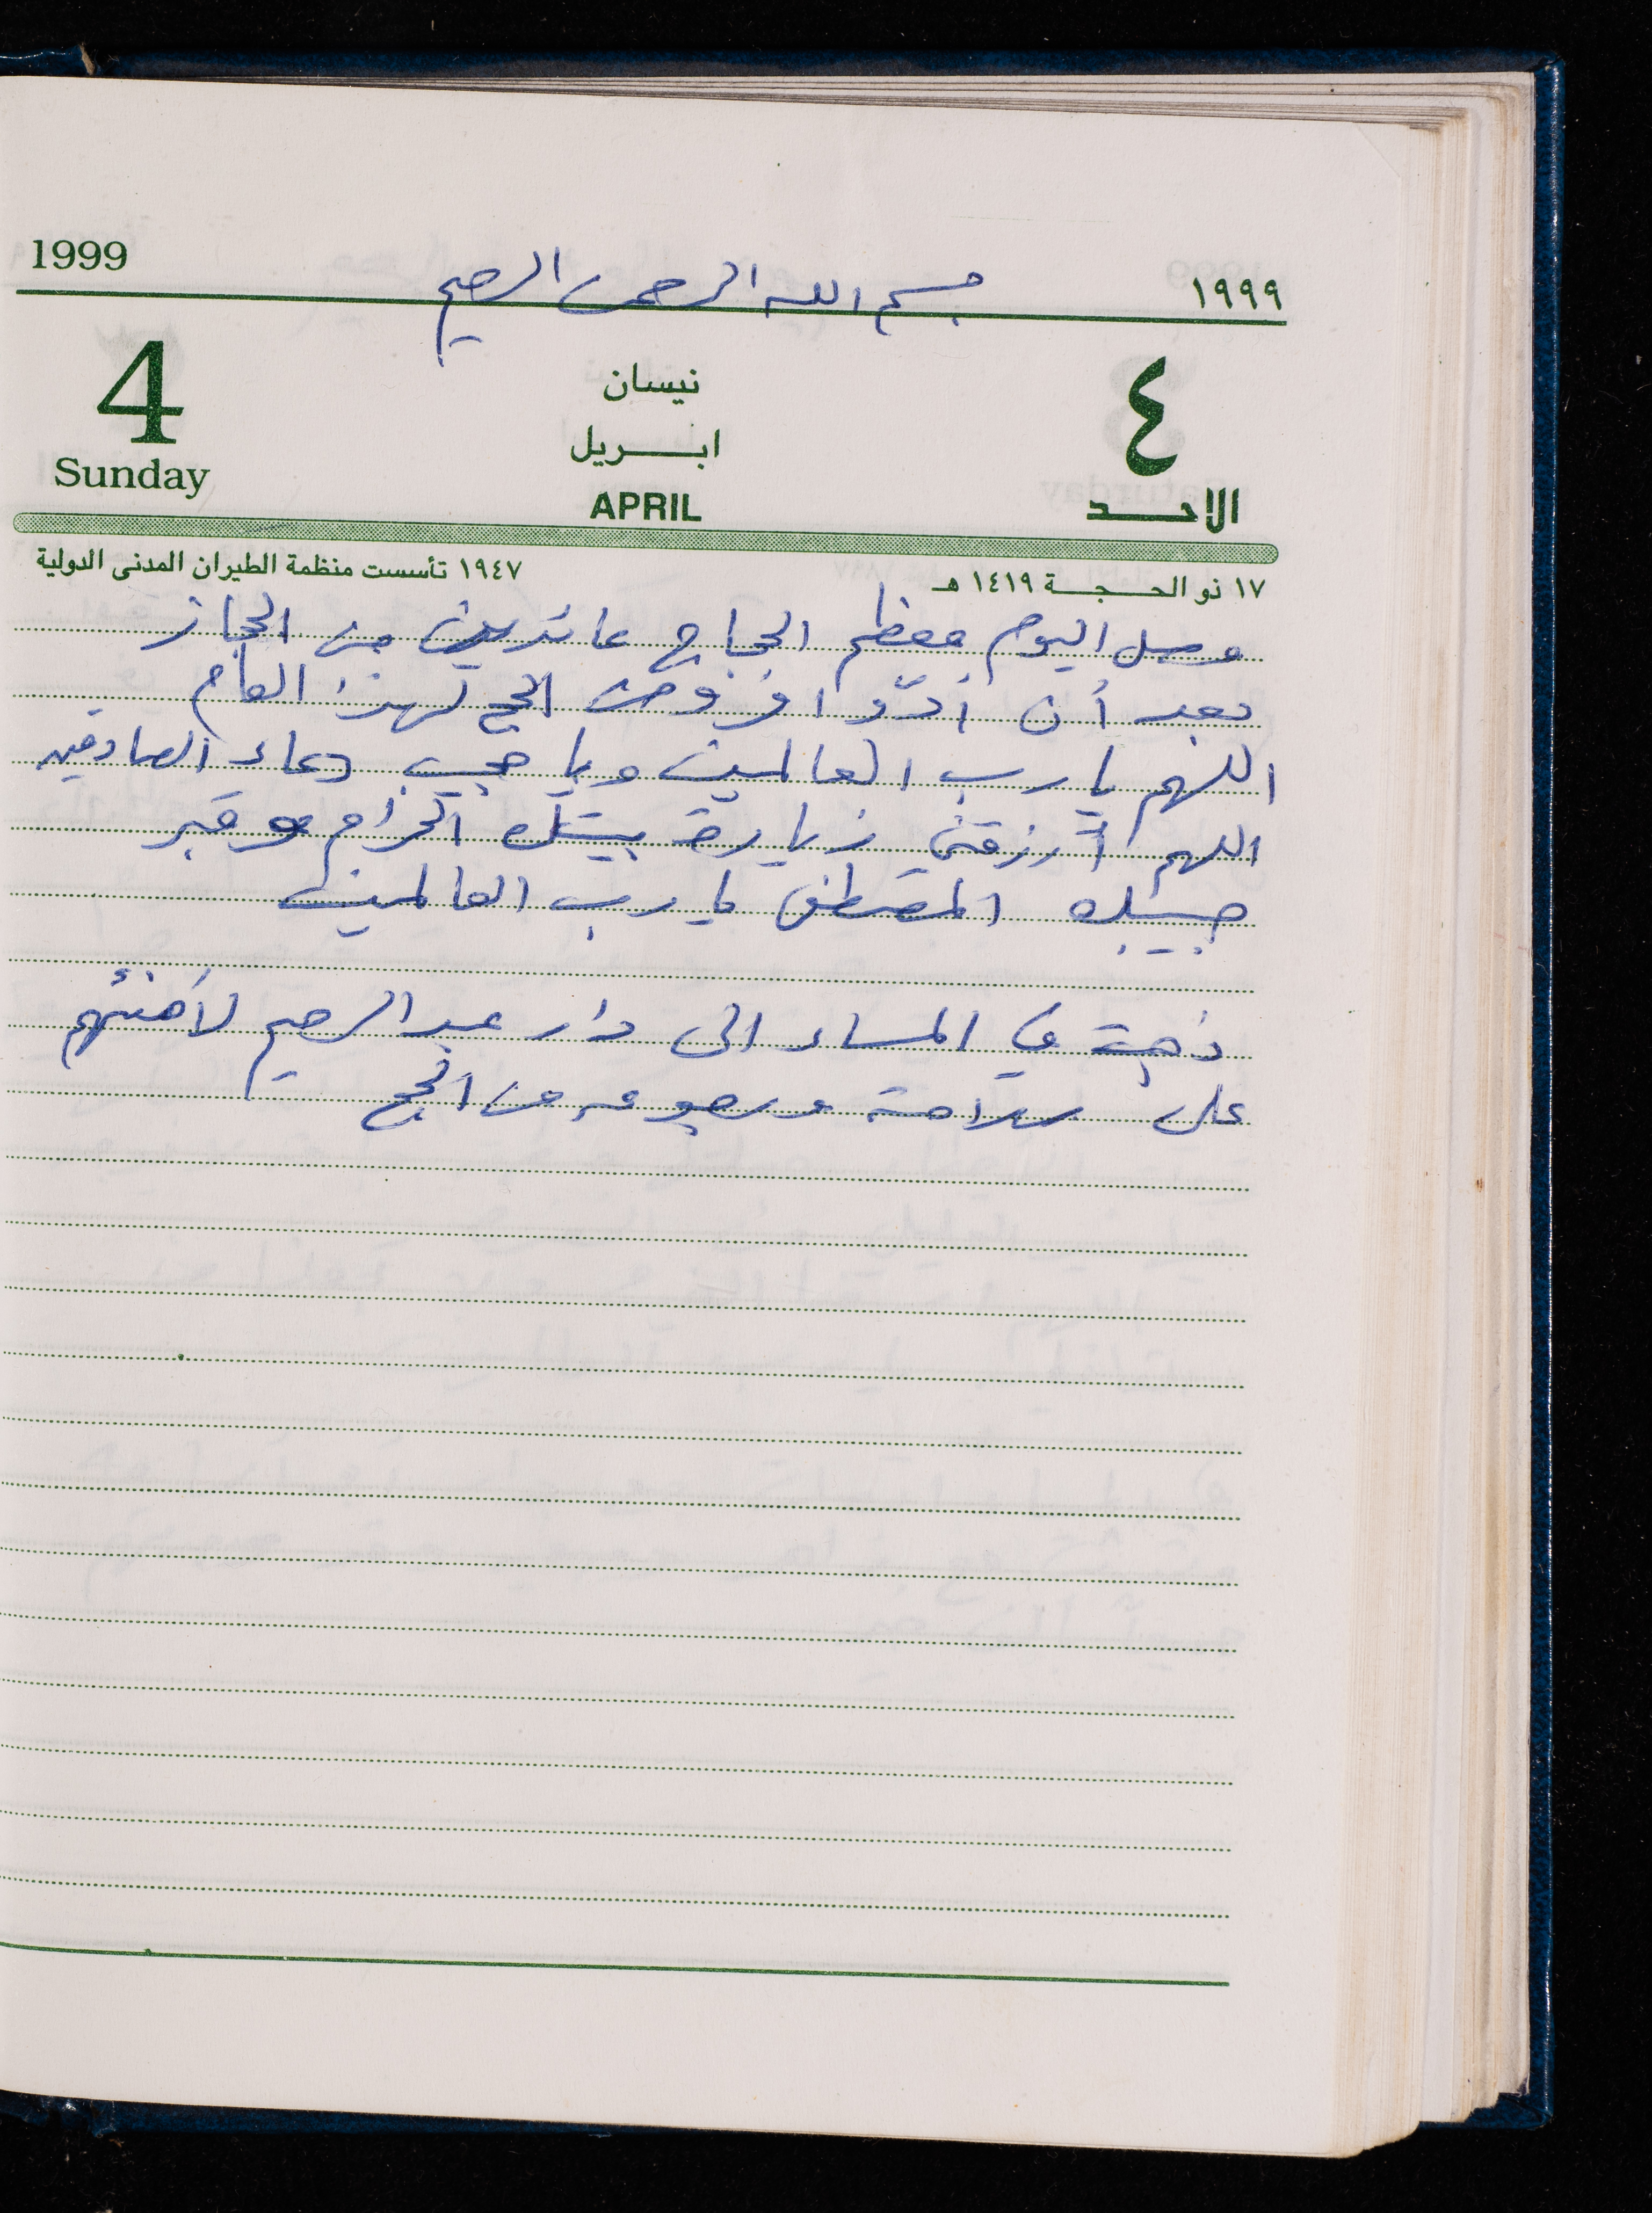 1999
١٩٩٩
بسم الله الرحمن الرحيم
4
نيسان
٤
ابـــريل
Sunday
APRIL
الاحـــد
١٧ ذو الحـــجـــة ١٤١٩ هـ
١٩٤٧ تأسست منظمة الطيران المدنى الدولية
وصل اليوم معظم الحجاج عائدين من الحجاز
بعد أن أدّوا فروض الحج لهذا العام
اللهم يا رب العالمين ويا مجيب دعاء الصادقين
اللهم أرزقني زيارة بيتك الحرام وقبر
حبيبك المصطفى يا رب العالمين
ذهبت في المساء الى دار عبد الرحيم لأهنئهم
على سلامة ورجوعه من الحج